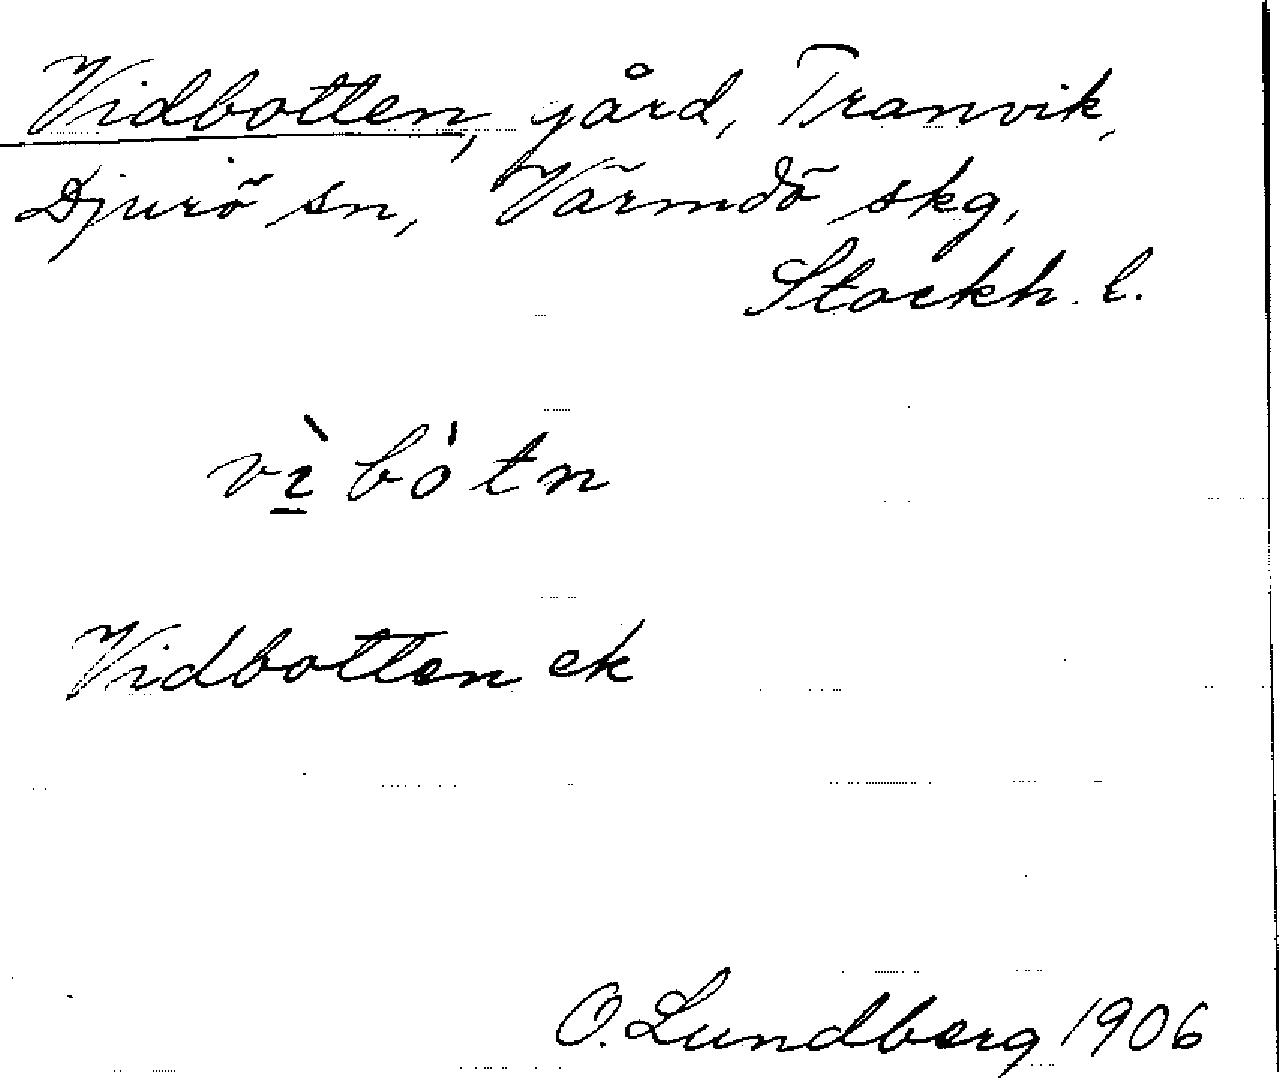 Vidbotten, gård, Tranvik,
Djurö sn, Värmdö skg,
Stockh. l.
vì̱ bȯtn
Vidbotten ek
O. Lundberg 1906